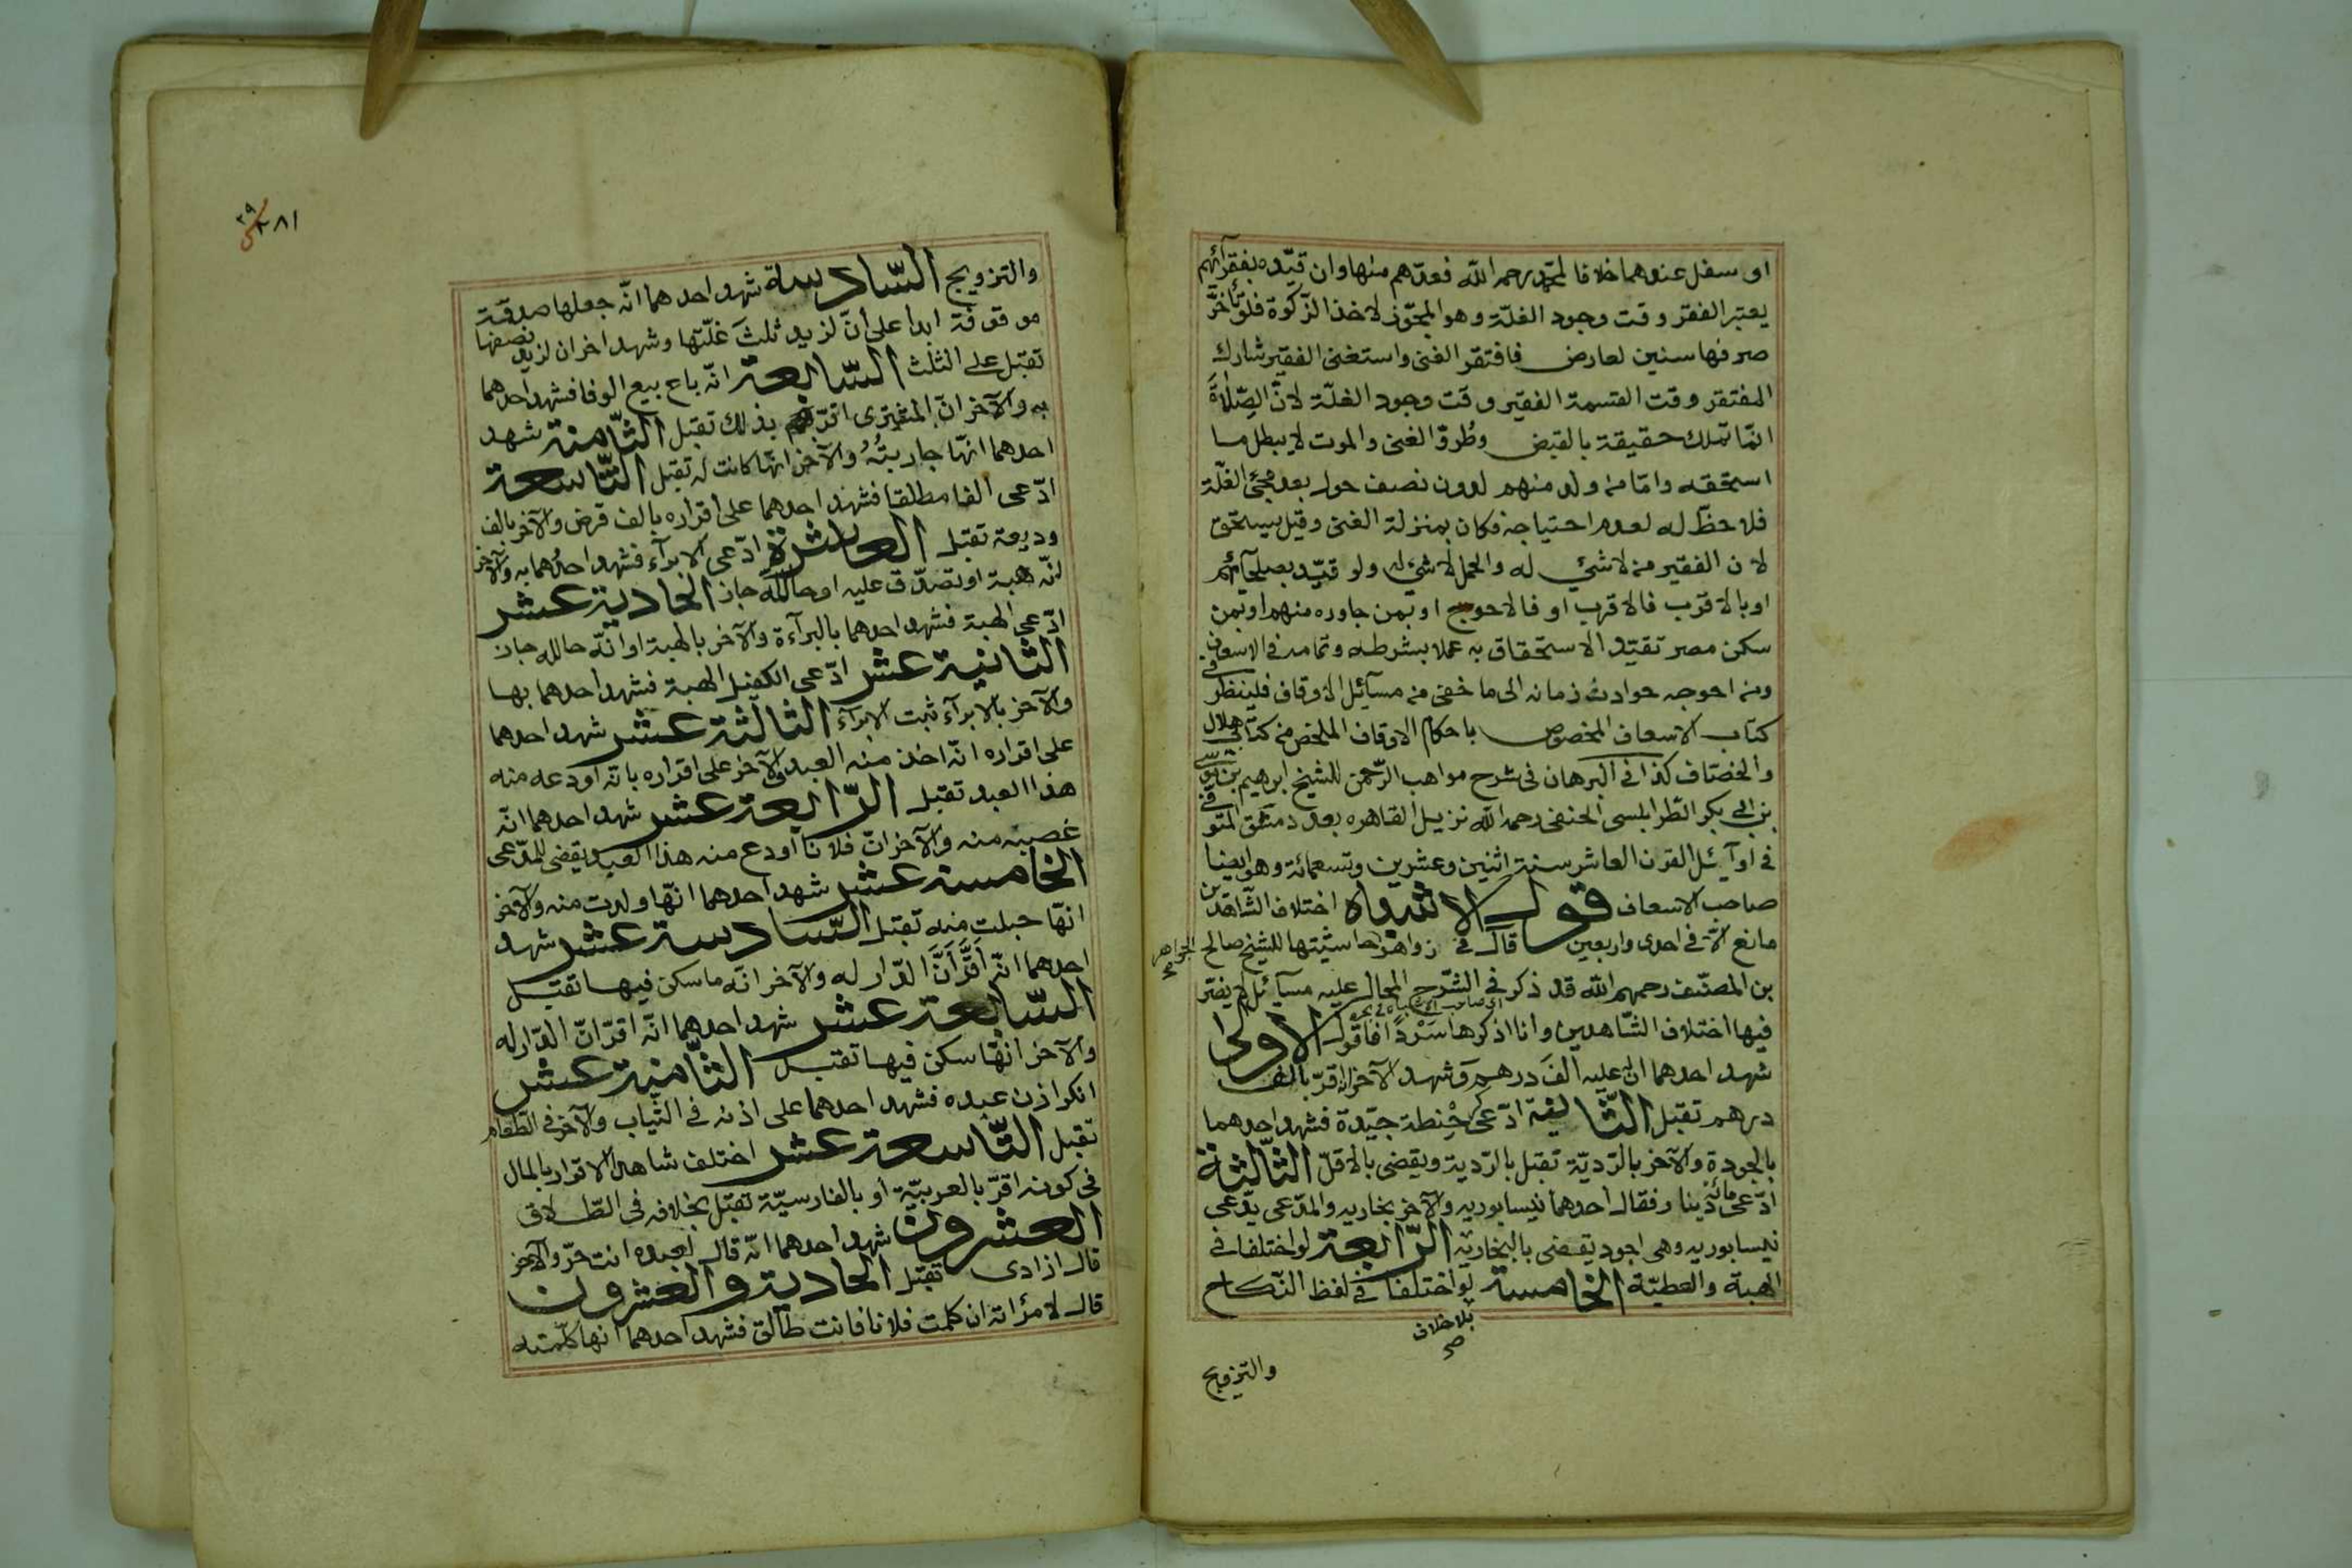 او سفل عندهما خلافا لمحمد رحمه الله فعدهم منها وان قيّده بفقرآئهم
يعتبر الفقر وقت وجود الغلّة وهو المجوّز لاخذ الزكوة فلو تأخّر
صرفها سنين لعارض فافتقر الغنى واستغنى الفقير شارك
المفتقر وقت القسمة الفقير وقت وجود الغلّة لانّ الصّلاةَ
انّما تملك حقيقة بالقبض وطُروّ الغنى والموت لا يبطل ما
استحقه وامّا من ولد منهم لدون نصف حول بعد مجئ الغلّة
فلا حظّ له لعدم احتياجه فكان بمنزلة الغنى وقيل يستحق
لان الفقير من لا شئ له والحمل لا شئ له ولو قيّد بصلحآئهم
او بالاقرب فالاقرب او فالاحوج او بمن جاوره منهم او بمن
سكن مصر تقيّد الاستحقاق به عملا بشرطه وتمامه فى الاسعاف
ومن احوجه حوادث زمانه الى ما خفى من مسآئل الاوقاف فلينظر فى
كتاب الاسعاف المخصوص باحكام الاوقاف الملخص من كتابى هلال
والخصّاف كذا فى البرهان فى شرح مواهب الرّحمن للشيخ ابرهيم بن موسى
بن ابى بكر الطّرابلسى الحنفى رحمه الله نزيل القاهره بعد دمشق المتوفى
فى اوآئل القرن العاشر سنة اثنين وعشرين وتسعمائة وهو ايضا
صاحب الاسعاف قول الاشباه اختلاف الشّاهدين
مانع الاّ فى احدى واربعين قال فى زواهر الجواهر حاشيتها للشيخ صالح
بن المصنّف رحمهم الله قد ذكر فى الشّرح المحال عليه مسآئل لا يضرّ
اى صاحب الاشباه فى بحره
فيها اختلاف الشّاهدين وانا اذكرها سَرْدًا فاقول الاولى
شهد احدهما ان عليه الفَ درهم وشهد الآخر انه اقرّ بالف
درهم تقبل الثّانية ادّعى حِنطة جيّدة فشهد احدهما
بالجودة والآخر بالرّديّة تقبل بالرّدية ويقضى بالاقلّ الثّالثة
ادّعى مائة دينار فقال احدهما نيسابوريه والآخر بخاريه والمدّعى يدّعى
نيسابوريه وهى اجود يقضى بالبخاريّه الرّابعة لو اختلفا فى
الهبة والعطيّة الخامسة لو اختلفا فى لفظ النّكاح
بلا خلاف صح
والتزويج
٢٨١
٢٩
والتزويج السّادسة شهد احدهما انّه جعلها صدقة
موقوفة ابدا على انّ لزيد ثلثَ غلّتها وشهد اخر ان لزيد نصفها
تقبل على الثلث السّابعة انّه باع بيع الوفا فشهد احدهما
به والآخر انّ المشترى اقرّ بذلك تقبل الثّامنة شهد
احدهما انّها جاريتُهُ والآخر انّها كانت له تقبل التّاسعة
ادّعى الفا مطلقا فشهد احدهما على اقراره بالف قرض والآخر بالف
وديعة تقبل العاشرة ادّعى الابرآء فشهد احدُهما به والآخر
انّه هبة او تصدّق عليه او حالله جاز الحادية عشر
ادّعى الهبة فشهد احدهما بالبرآءة والآخر بالهبة او انّه حالله جاز
الثّانية عشر ادّعى الكفيل الهبة فشهد احدهما بها
والآخر بالابرآء ثبت الابرآء الثالثة عشر شهد احدهما
على اقراره انّه اخذ منه العبد والآخر على اقراره بانّه اودعه منه
هذا العبد تقبل الرّابعة عشر شهد احدهما انّه
غصبه منه والآخر انّ فلانا اودع منه هذا العبد يقضى للمدّعى
الخامسة عشر شهد احدهما انّها ولدت منه والآخر
انّها حبلت منه تقبل السّادسة عشر شهد
احدهما انّه اَقَرَّ اَنَّ الدّار له والآخر انّه ما سكن فيها تقبل
السّابعة عشر شهد احدهما انّه اقرّ انّ الدّار له
والآخر انّها سكن فيها تقبل الثّامنة عشر
انكر اذن عبده فشهد احدهما على اذنه فى الثّياب والآخر فى الطّعام
تقبل التّاسعة عشر اختلف شاهدا الاقرار بالمال
فى كونه اقرّ بالعربيّة او بالفارسيّة تقبل بخلافه فى الطّلاق
العشرون شهد احدهما انّه قال لعبده انت حرّ والآخر
قال ازادى تقبل الحادية والعشرون
قال لامرأته ان كلمت فلانا فانت طالق فشهد احدهما انها كلّمته